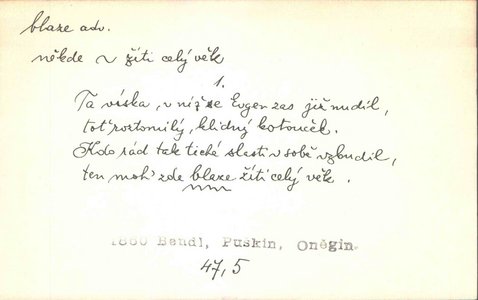 blaze adv.
někde v žíti celý věk
1.
Ta víska, v níž se Eugen zas již nudil,
toť roztomilý, klidný kotouček.
Kdo rád tak tiché slasti v sobě vzbudil,
ten moh' zde blaze žíti celý věk.
1860 Bendl, Puškin, Oněgin.
47,5